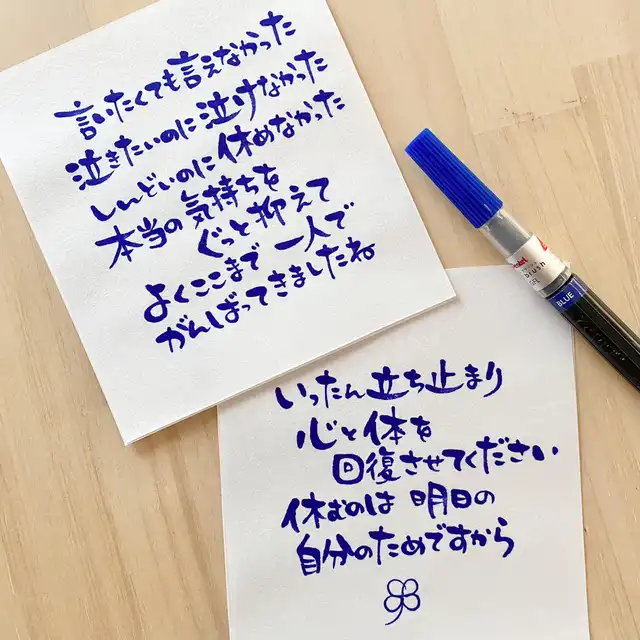 言いたくても言えなかった
泣きたいのに泣けなかった
しんどいのに休めなかった
本当の気持ちを
ぐっと抑えて
よくここまで一人で
がんばってきましたね
いったん立ち止まり
心と体を
回復させてください
休むのは 明日の
自分のためですから
brush
BLUE